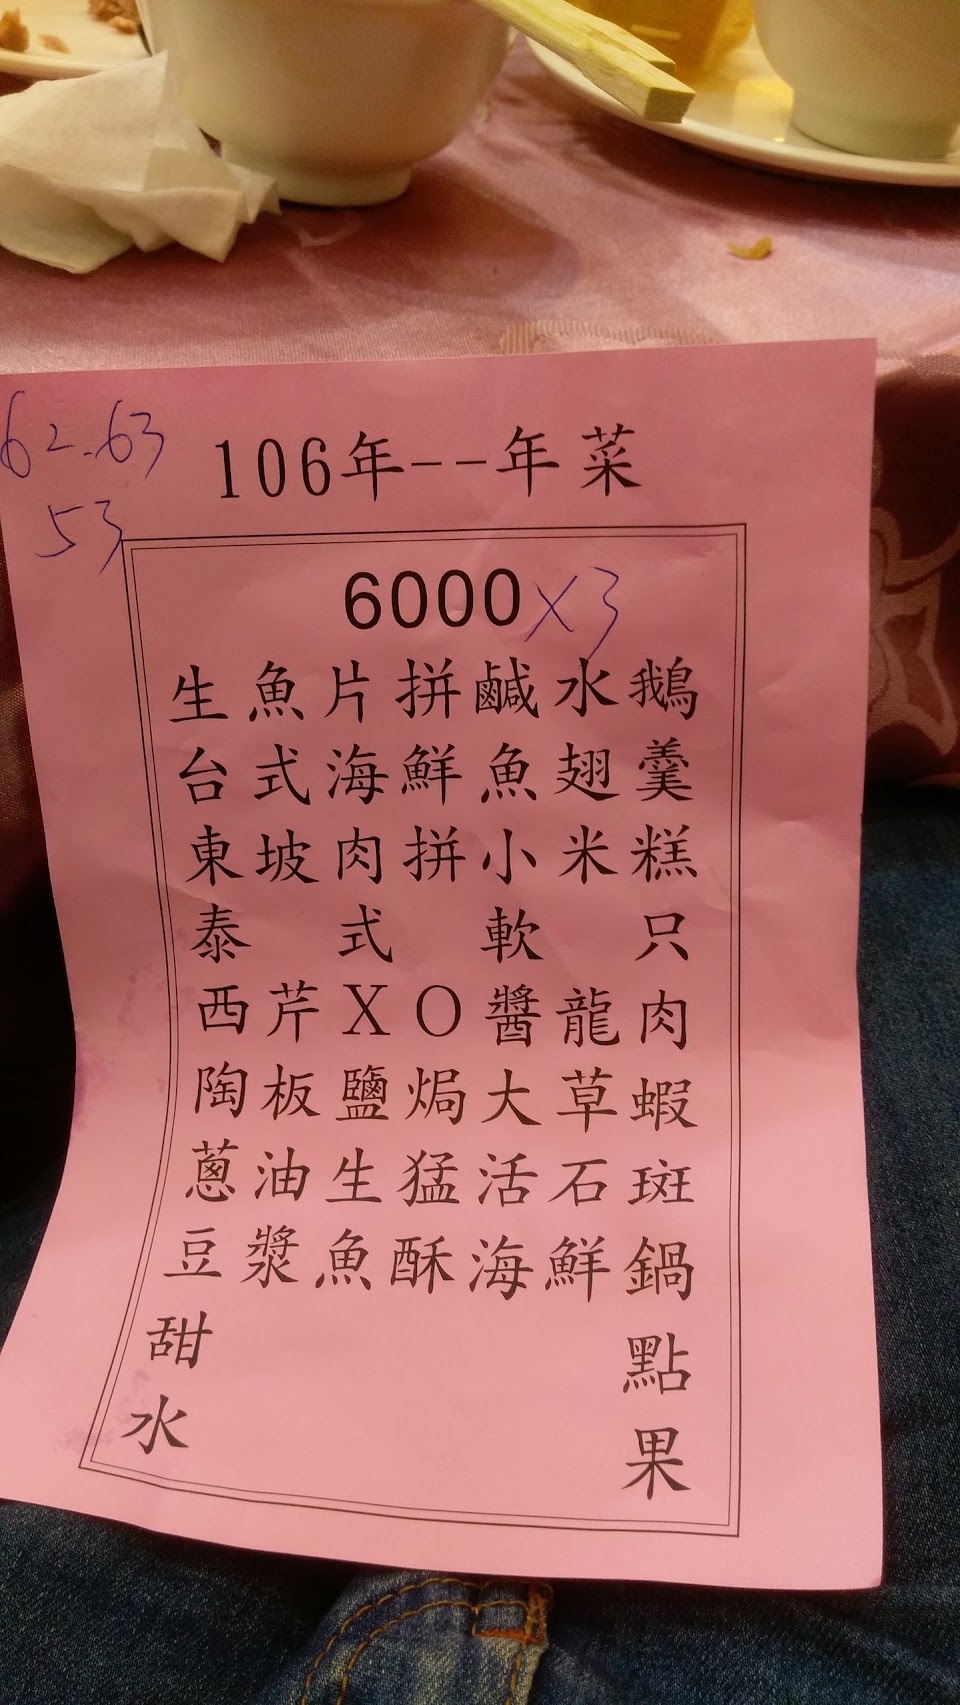 62.63
53
106年--年菜
6000 x3
生魚片拼鹹水鵝
台式海鮮魚翅羹
東坡肉拼小米糕
泰式軟只
西芹XO醬龍肉
陶板鹽焗大草蝦
蔥油生猛活石斑
豆漿魚酥海鮮鍋
甜點
水果